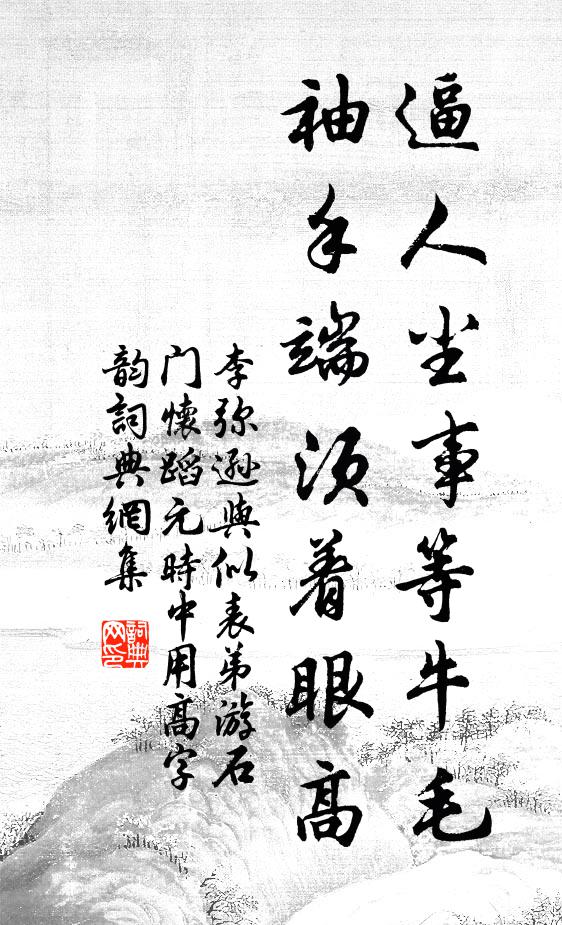 逼人尘事等牛毛
袖手端须着眼高
李弥逊與似表弟游石
门懷蹈元時中用高字
韵詞典網集
詞典网印